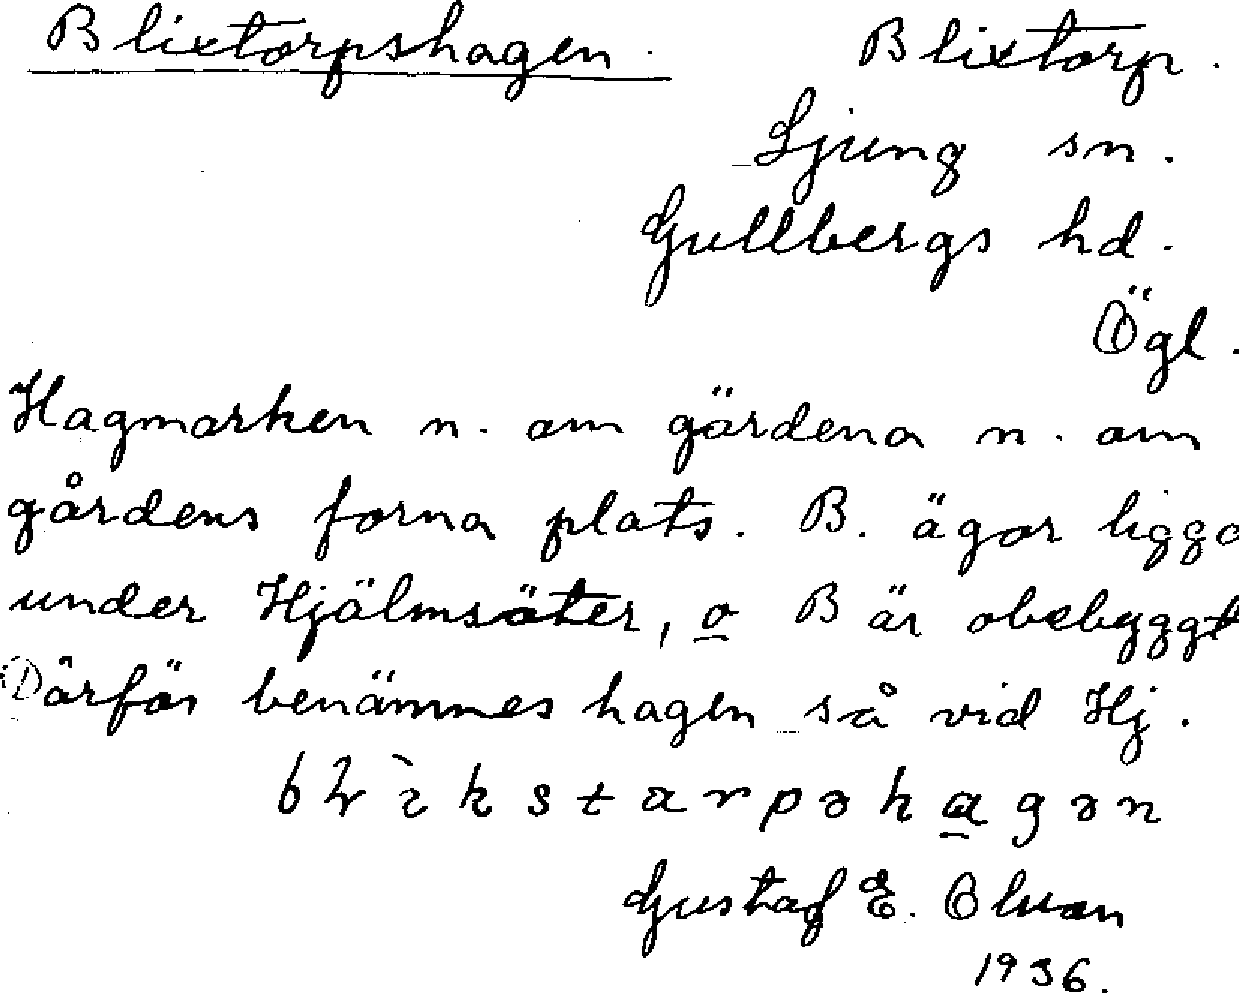 Blixtorpshagen. Blixtorp.
Ljung sn.
Gullbergs hd.
Ögl.
Hagmarken n. om gärdena n. om
gårdens forna plats. B. ägor ligga
under Hjälmsäter, o B är obebyggt
Därför benämnes hagen så vid Hj.
Gustaf E. Olsson
1936.